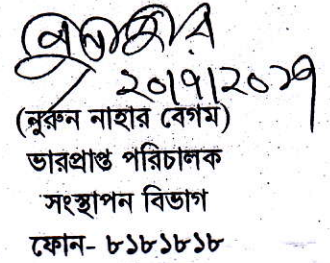 ২০।৭।২০১৭
(নুরুন নাহার বেগম)
ভারপ্রাপ্ত পরিচালক
সংস্থাপন বিভাগ
ফোন- ৮১৮১৮১৮